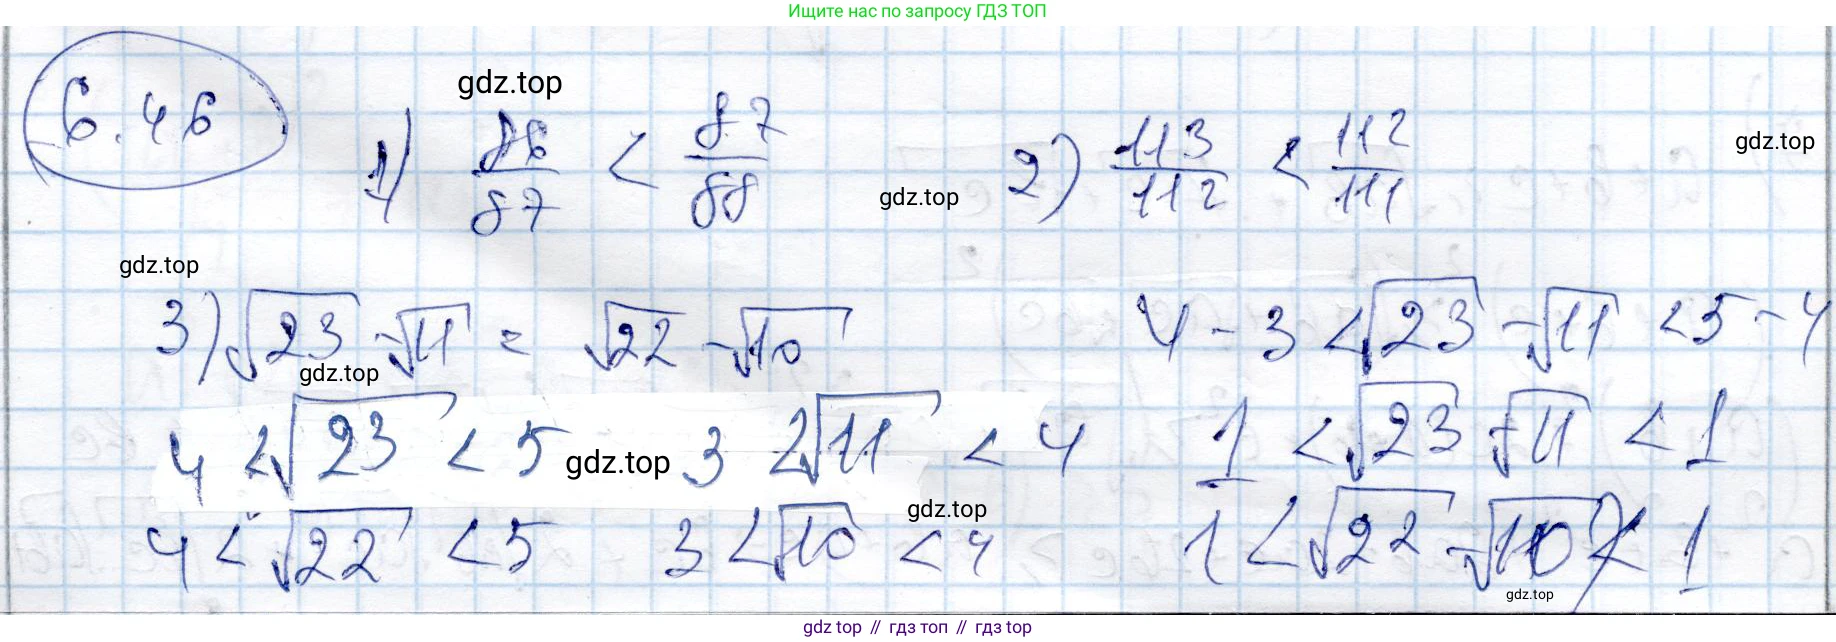 Ищите нас по запросу ГДЗ ТОП
6.46
gdz.top
1) 86/87 < 87/88
2) 113/112 < 112/111
gdz.top
gdz.top
gdz.top
3) √23 - √11 = √22 - √10
4 - 3 < √23 - √11 < 5 - 4
gdz.top
4 < √23 < 5
gdz.top
3 < √11 < 4
1 < √23 - √11 < 1
gdz.top
4 < √22 < 5
3 < √10 < 4
1 < √22 - √10 < 1
gdz.top
gdz top // гдз топ // гдз top